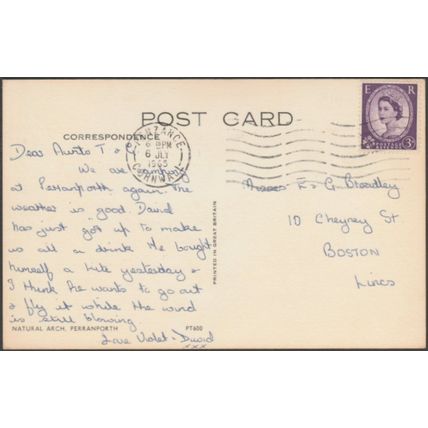 E R
POST CARD
CORRESPONDENCE
PENZANCE
6 PM
6 JLY
1965
CORNWALL
3D
Dear Aunts T &
We are camping
at Perranporth again. The
weather is good. David
has just got up to make
us all a drink. He bought
himself a kite yesterday &
I think he wants to go out
& fly it while the wind
is still blowing.
Love Violet & David
xxx
PRINTED IN GREAT BRITAIN
Misses & G. Bradley
10 Cheyney St.
BOSTON
Lincs
NATURAL ARCH, PERRANPORTH
PT600